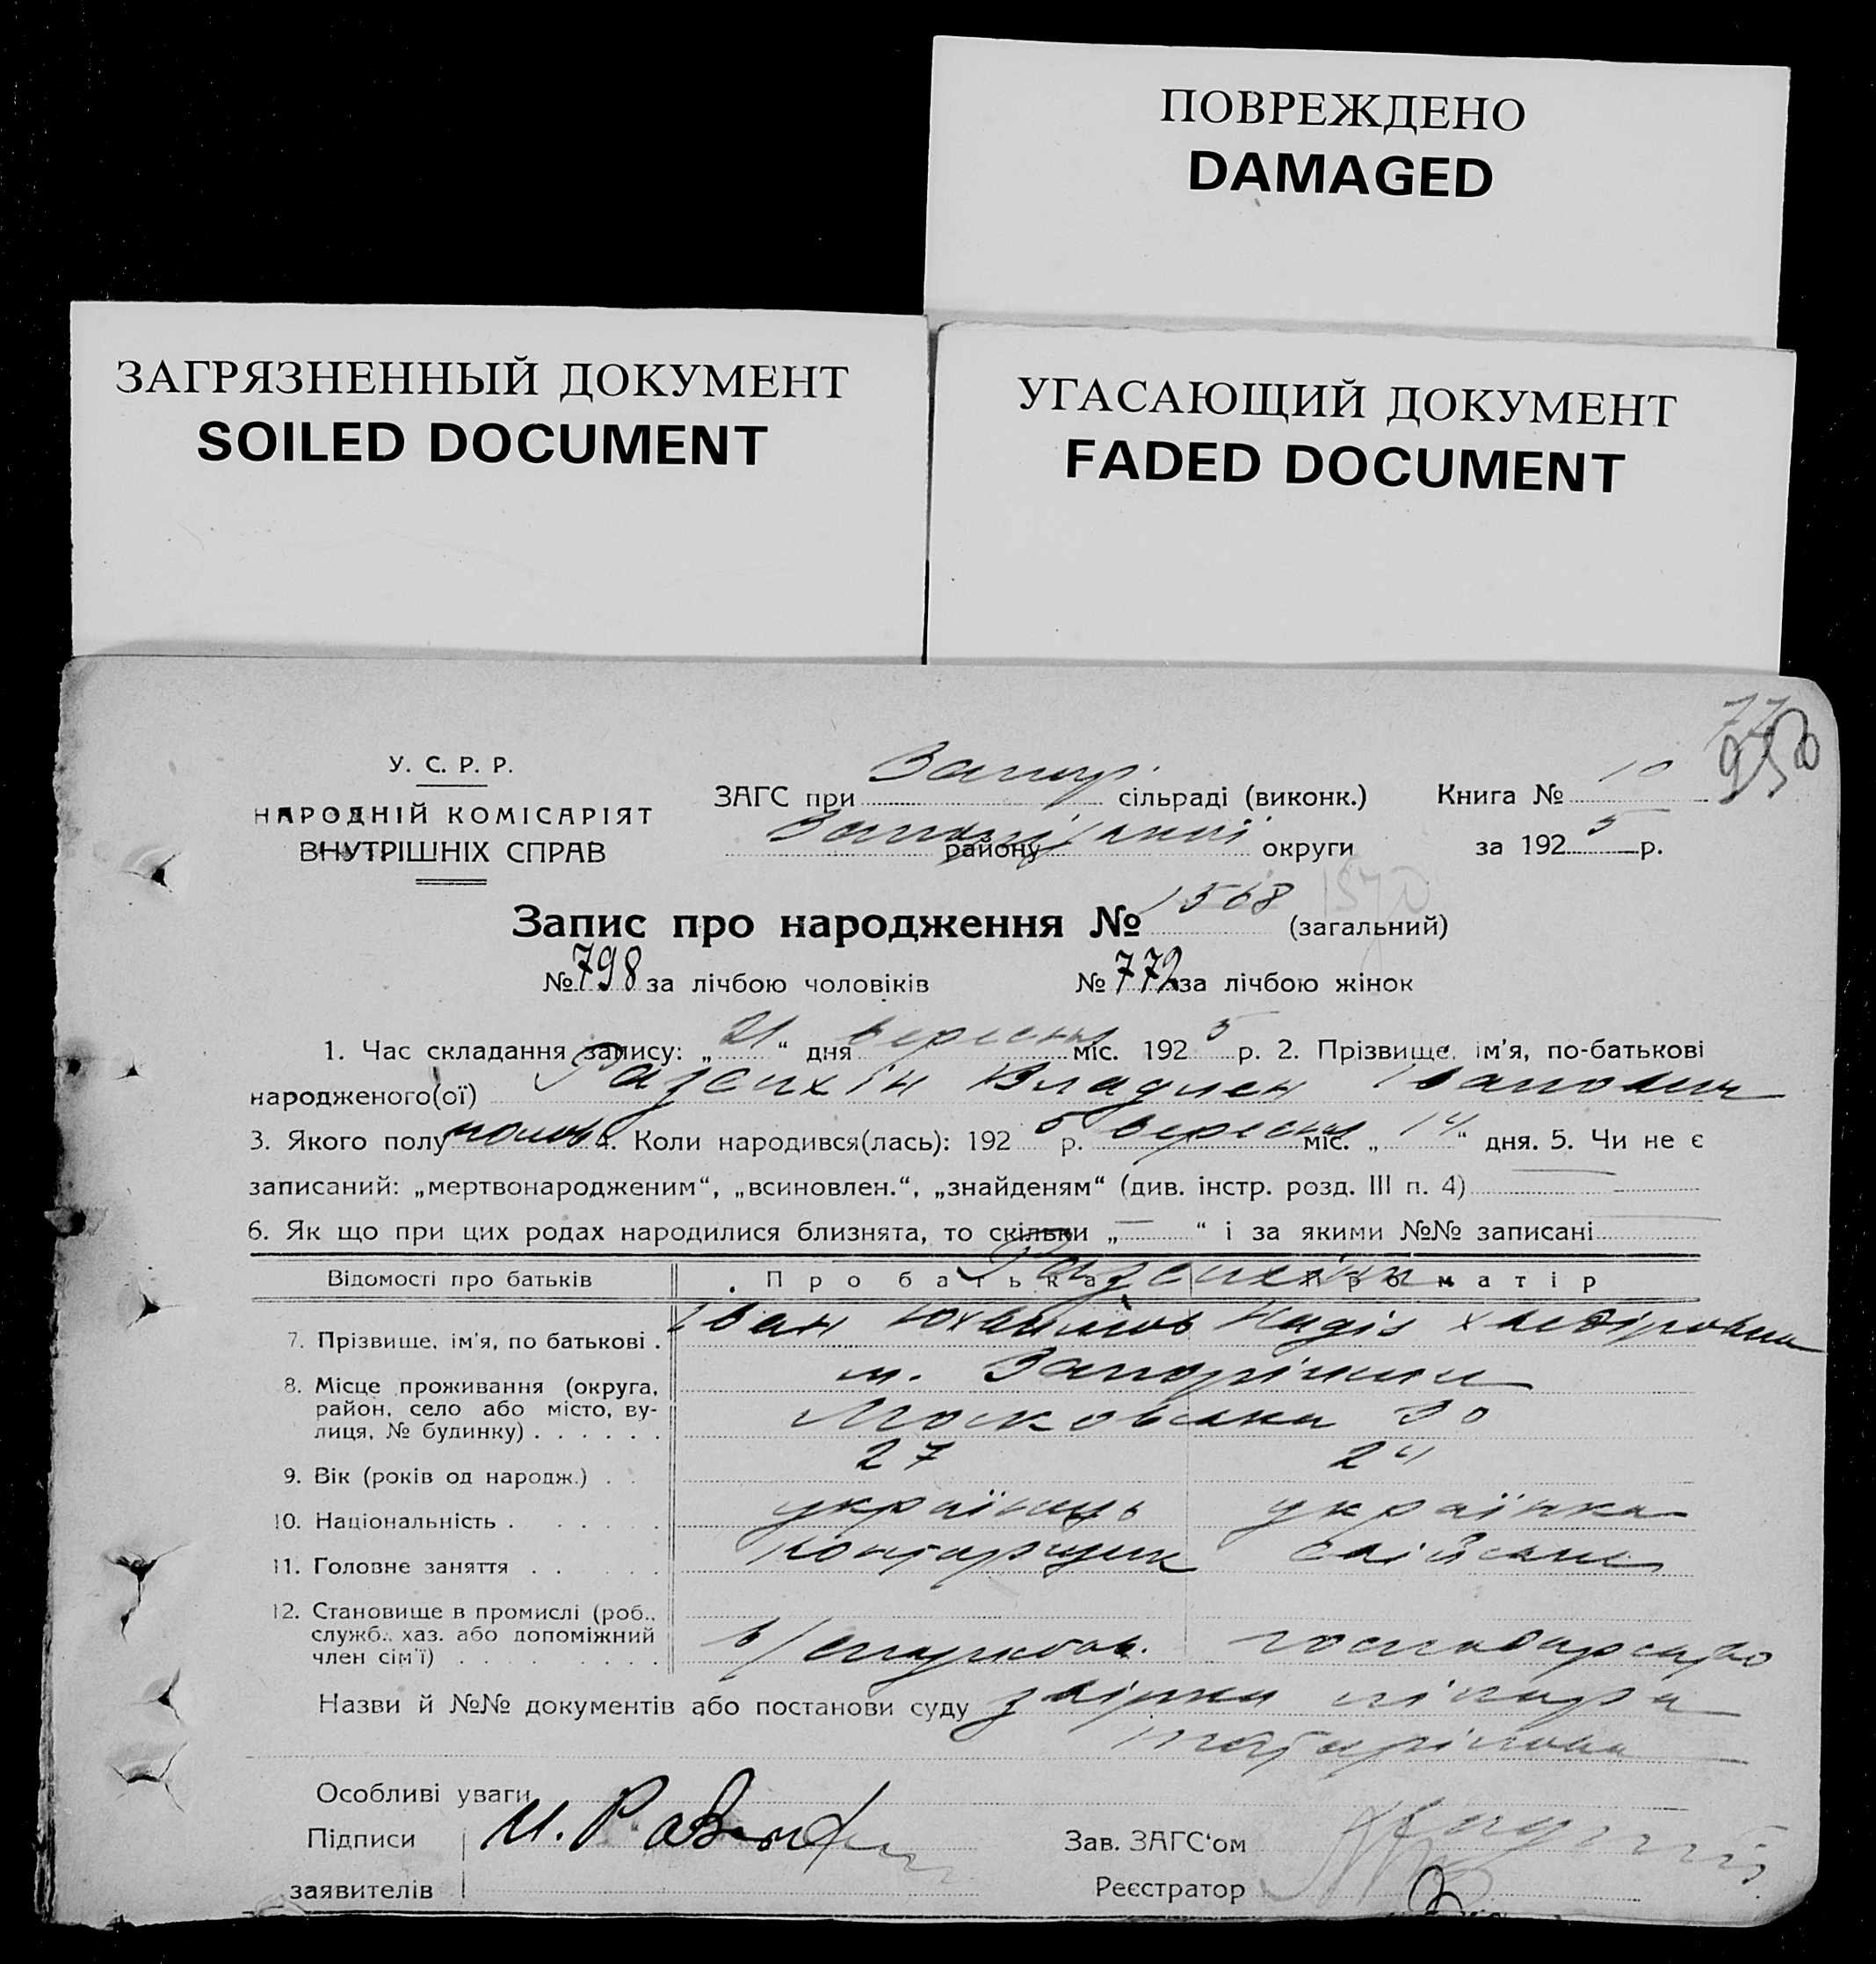 ПОВРЕЖДЕНО
DAMAGED
ЗАГРЯЗНЕННЫЙ ДОКУМЕНТ
SOILED DOCUMENT
УГАСАЮЩИЙ ДОКУМЕНТ
FADED DOCUMENT
77
950
У. С. Р. Р.
НАРОДНІЙ КОМІСАРІЯТ
ВНУТРІШНІХ СПРАВ
ЗАГС при Запор. сільраді (виконк.) Книга № 10
району округи за 192 5 р.
Запис про народження № 1568 (загальний) 1570
№ 798 за лічбою чоловіків № 772 за лічбою жінок
1. Час складання запису: „ 21 “ дня вересня міс. 192 5 р. 2. Прізвище, ім'я, по-батькові
народженого(ої) Владлен Іванович
3. Якого полу чолов 4. Коли народився(лась): 192 5 р. вересня міс. „ 14 “ дня. 5. Чи не є
записаний: „мертвонародженим“, „всиновлен.“, „знайденям“ (див. інстр. розд. III п. 4)
6. Як що при цих родах народилися близнята, то скільки „ — “ і за якими №№ записані
Відомості про батьків Про батька Про матір
7. Прізвище, ім'я, по батькові . Іван Юхимов Надія
8. Місце проживання (округа, м. Запоріжжя
район, село або місто, ву- Московська 30
лиця, № будинку) . . . . . .
9. Вік (років од народж.) . . 27 24
10. Національність . . . . . . українець українка
11. Головне заняття . . . . . Конторщик хатнє
12. Становище в промислі (роб.,
служб., хаз. або допоміжний
член сім'ї) . . . . . . . . . господарство
Назви й №№ документів або постанови суду
Особливі уваги
Підписи
заявителів
Зав. ЗАГС‘ом
Реєстратор